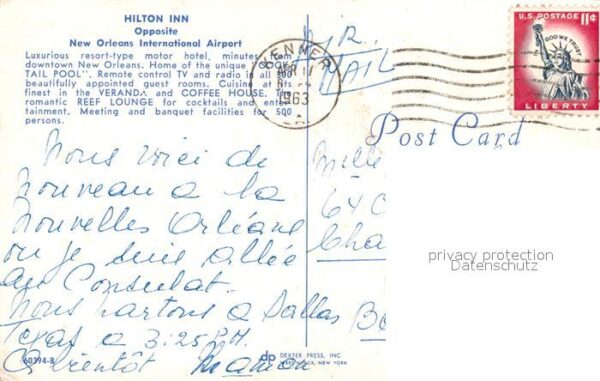 HILTON INN
Opposite
New Orleans International Airport
Luxurious resort-type motor hotel, minutes from
downtown New Orleans. Home of the unique "COCK-
TAIL POOL". Remote control TV and radio in all 300
beautifully appointed guest rooms. Cuisine at its
finest in the VERANDA and COFFEE HOUSE. The
romantic REEF LOUNGE for cocktails and enter-
tainment. Meeting and banquet facilities for 500
persons.
KENNER
1963
AIR
MAIL
U.S. POSTAGE 11¢
IN GOD WE TRUST
LIBERTY
Post Card
Nous voici de
nouveau a la
Nouvelles Orléans
ou je suis allée
au Consulat.
Nous partons a Dallas
Texas a 3:25 P.M.
A bientôt Maman
Melle
64 C
Cha
Be
privacy protection
Datenschutz
60394-B
dp DEXTER PRESS, INC.
WEST NYACK, NEW YORK